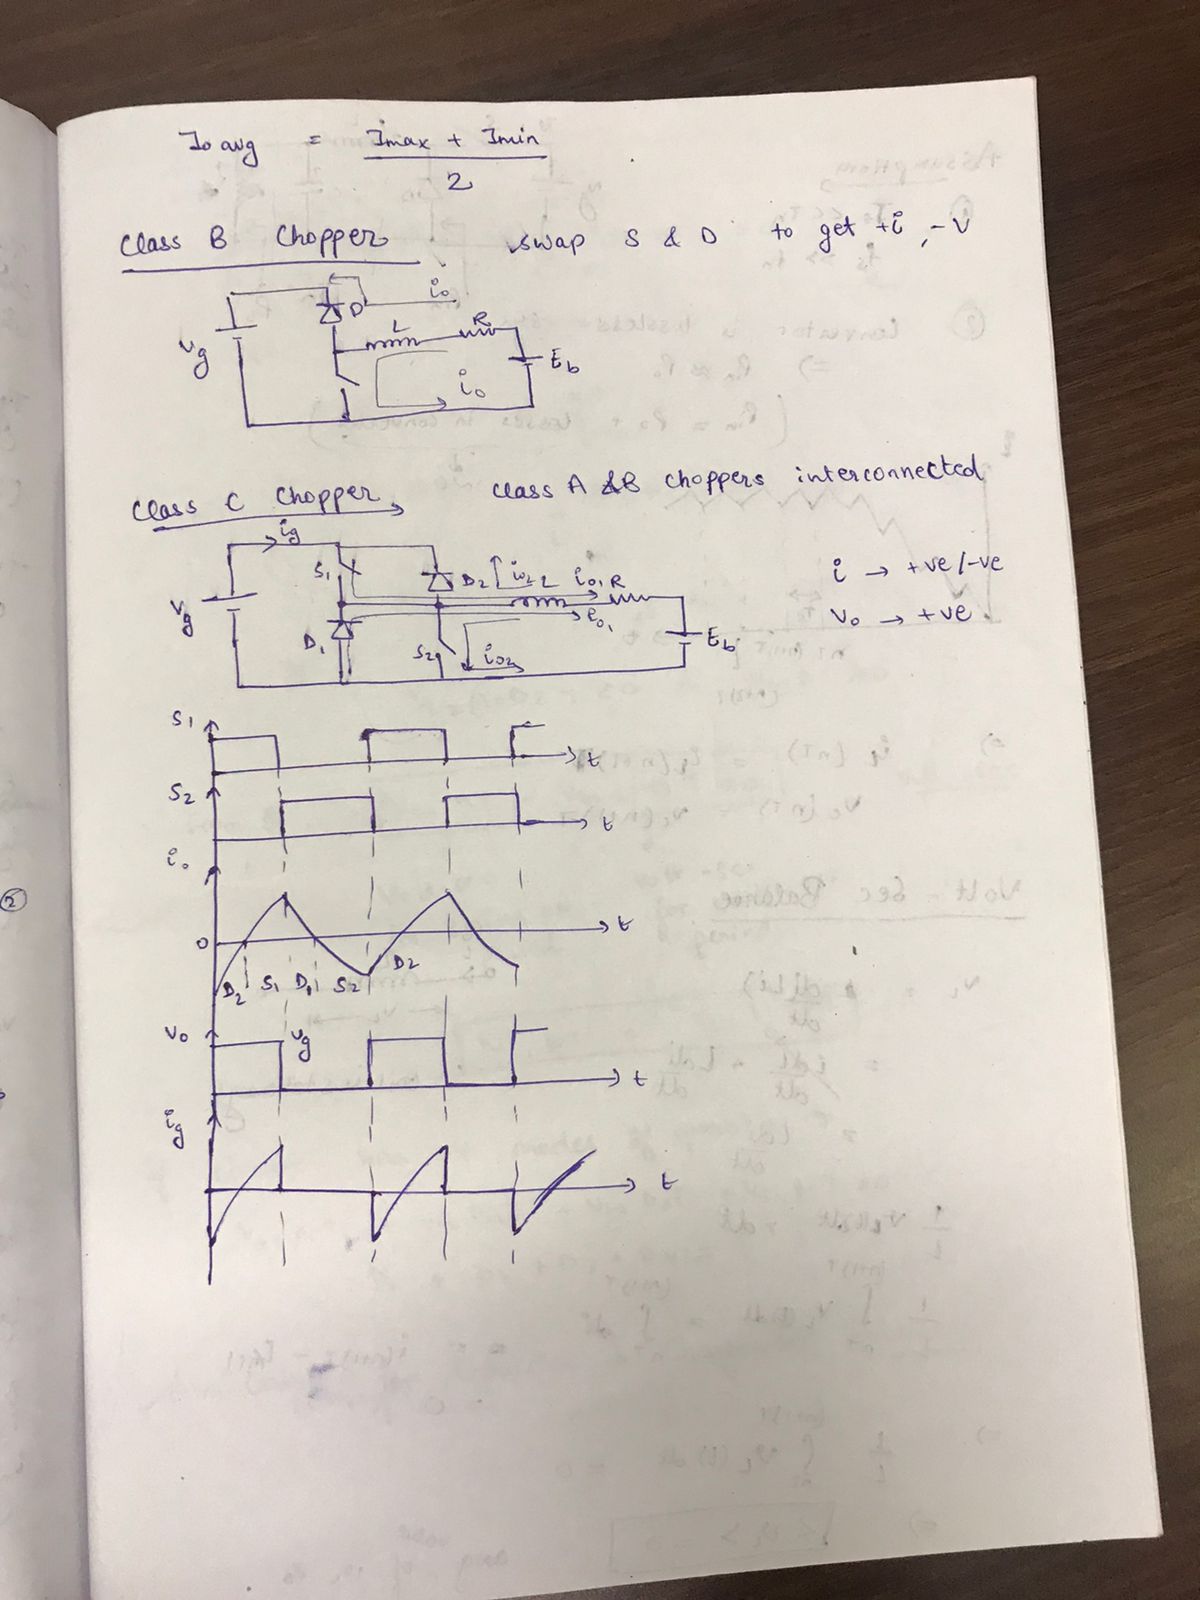 Io avg = Imax + Imin / 2
Class B Chopper swap S & D to get +i, -v
io
D
L R
Vg
Eb
io
Class C Chopper class A & B choppers interconnected
ig
S1 D2 io2 L io1 R
i → +ve/-ve
Vg
io1
Vo → +ve
D1 S2 io2 Eb
S1
t
S2
t
io
0 t
D2 S1 D1 S2 D2
Vo Vg
t
ig
t
2